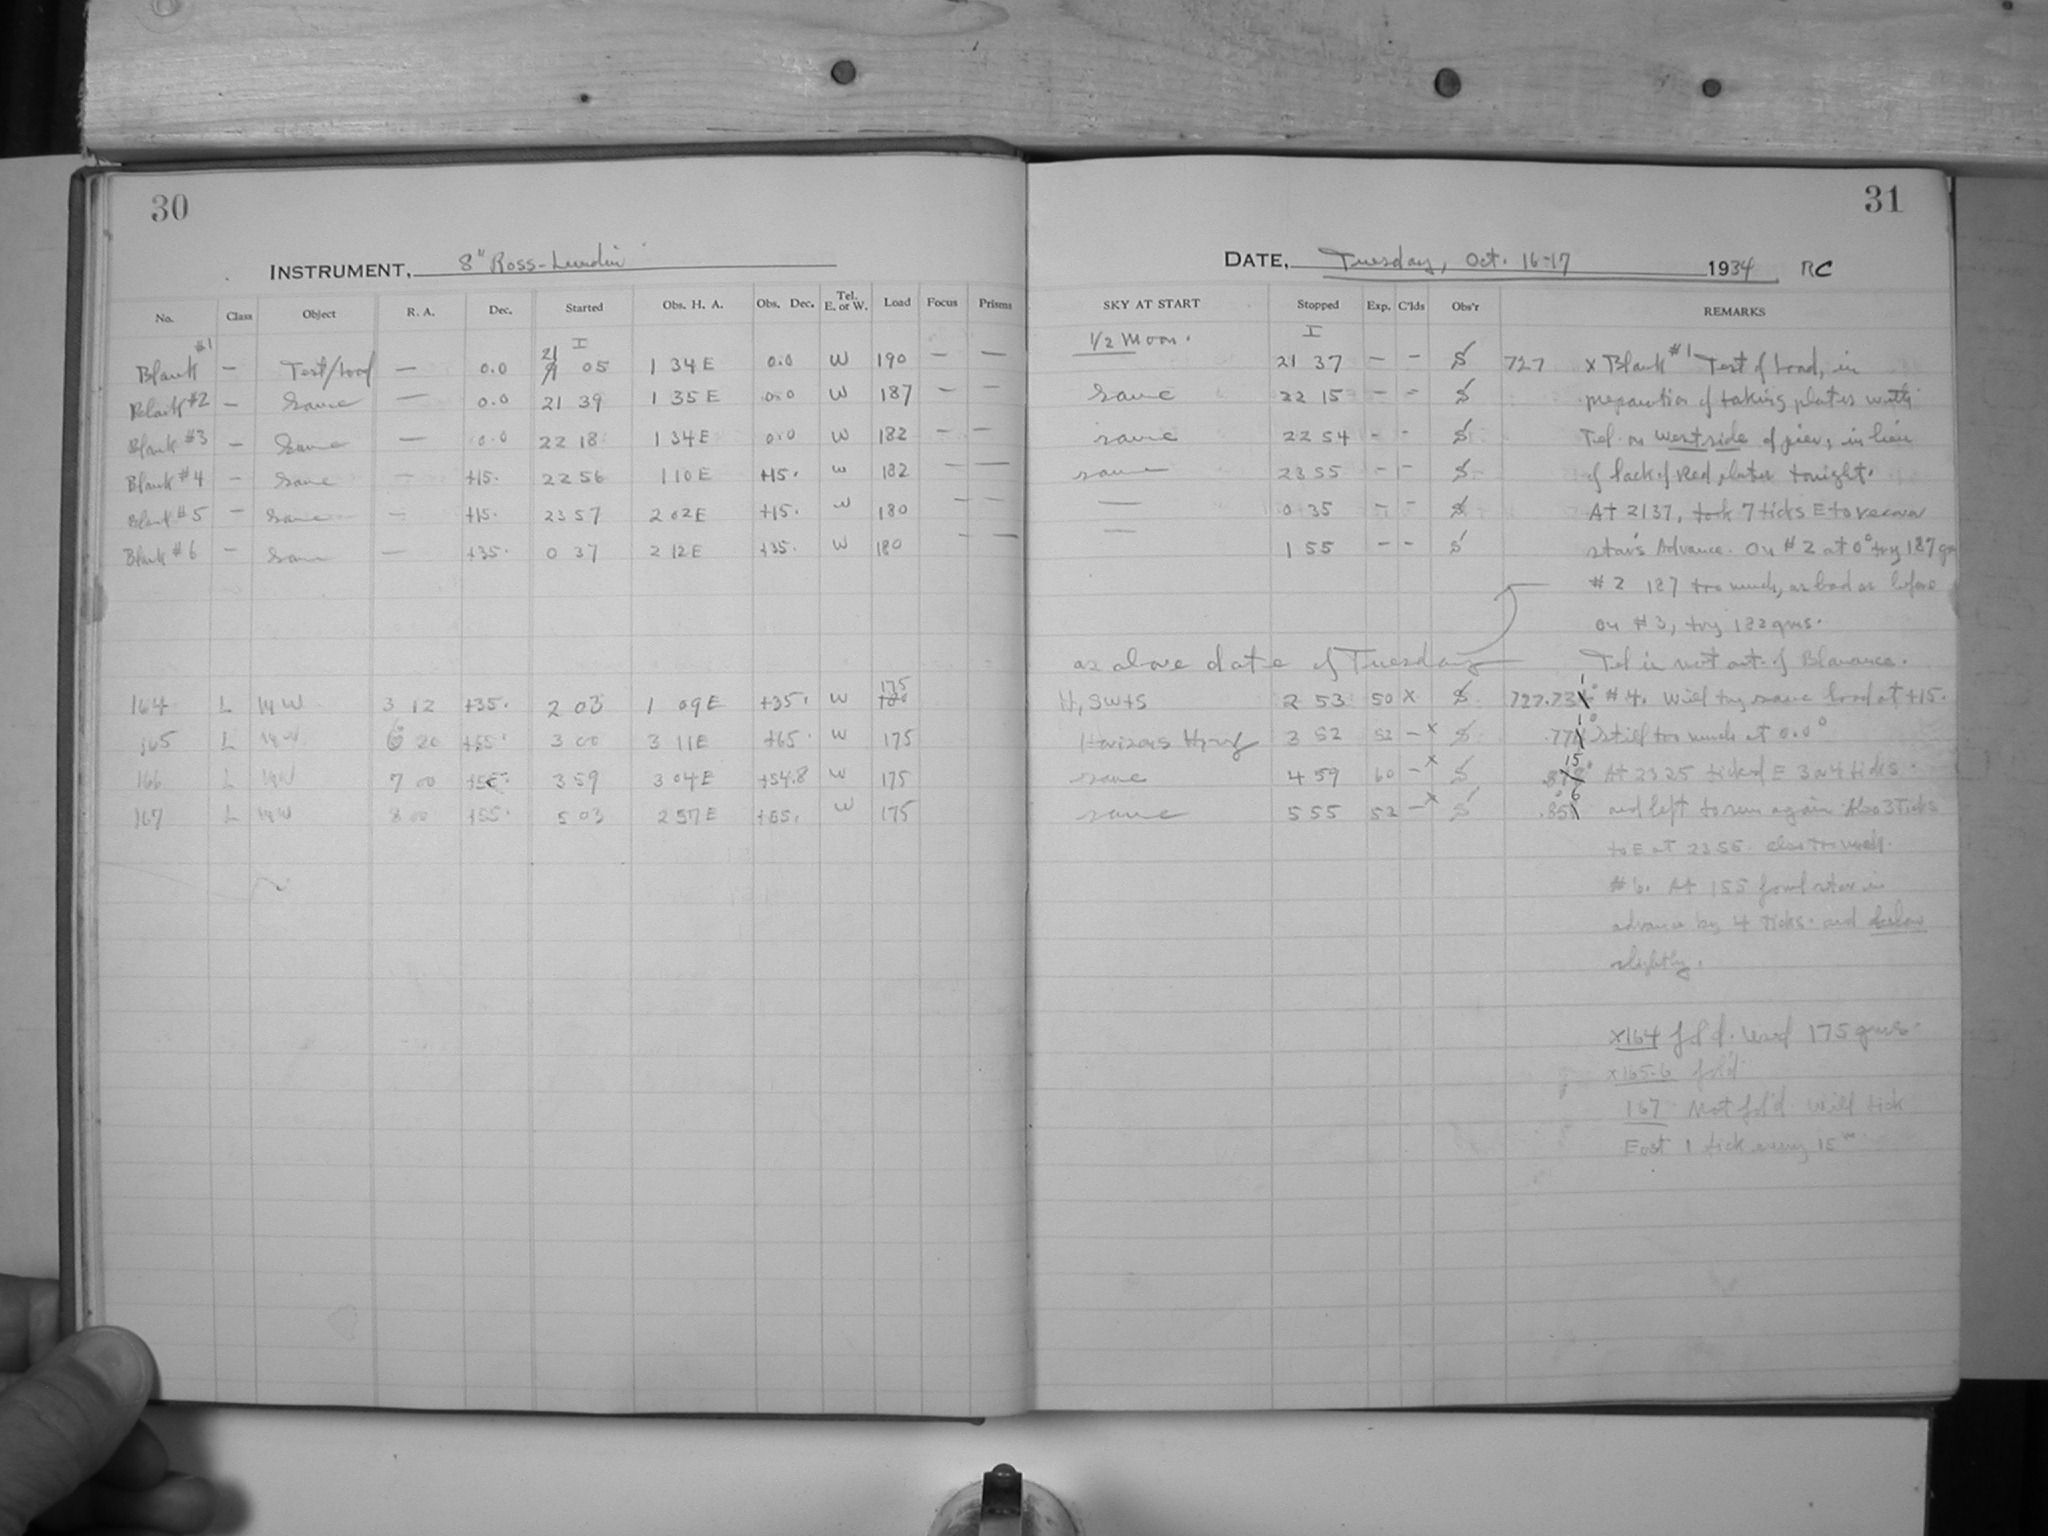 30
INSTRUMENT, 8" Ross-Lundin
No. Class Object R. A. Dec. Started Obs. H. A. Obs. Dec. Tel. E. or W. Load Focus Prisms
I
Blank #1 — Test/Load — 0.0 21 05 1 34 E 0.0 W 190 — —
Blank #2 — Same — 0.0 21 39 1 35 E 0.0 W 187 — —
Blank #3 — Same — 0.0 22 18 1 34 E 0.0 W 182 — —
Blank #4 — Same — +15. 22 56 1 10 E +15. W 182 — —
Blank #5 — Same — +15. 23 57 2 02 E +15. W 180 — —
Blank #6 — Same — +35. 0 37 2 12 E +35. W 180 — —
164 L MW 3 12 +35. 2 03 1 09 E +35. W 175 180
165 L MW 6 20 3 00 3 11 E +65. W 175
166 L MW 7 00 3 59 3 04 E +54.8 W 175
167 L MW 8 00 +55. 5 03 2 57 E +55. W 175
31
DATE, Tuesday, Oct. 16-17 1934 RC
SKY AT START Stopped Exp. C'lds Obs'r REMARKS
1/2 Moon. I
21 37 — — S 727 x Blank #1 Test of Load, in
Same 22 15 — — S preparation of taking plates with
same 22 54 — — S Tel. on west side of pier, in lieu
same 23 55 — — S of lack of Red plates tonight.
— 0 35 — — S At 2137, took 7 ticks E to recover
— 1 55 — — S stars Advance. On #2 at 0° try 187 gm
#2 187 too much, as bad as before
on #3, try 182 gms.
as above date of Tuesday Tel is not out of Blanance.
H, SW+S 2 53 50 x S 727.73 #4. Will try same load at +15.
Horizons Hazy 3 52 52 — x S .77 Still too much at 0.0°
same 4 59 60 — x S At 2325 ticked E 3 or 4 ticks
same 5 55 52 — x S .85 and left to run again Also 3 Ticks
to E at 2355. also too much.
#6. At 155 found star in
advance by 4 ticks. and below
slightly.
x164 fol'd. used 175 gms.
x165-6 fol'd
167 Not fol'd. Will tick
East 1 tick every 15m